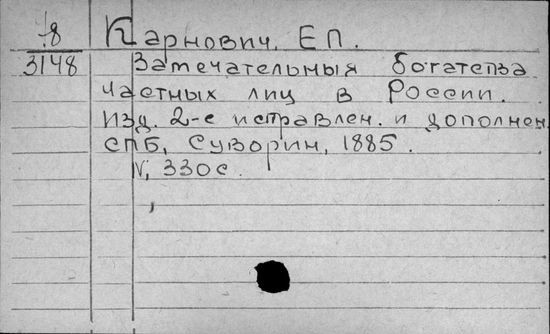 18 Карнович, Е П.
3148 Замечательныя богатства
частных лиц в России.
Изд. 2-е исправлен. и дополнен
СПБ, Суворин, 1885.
IV, 330с.